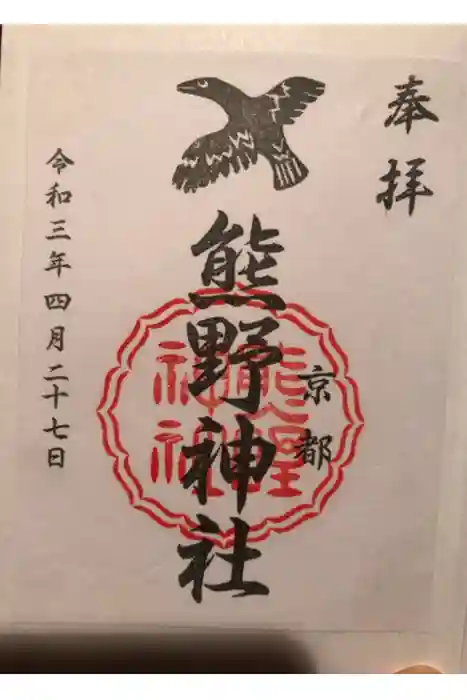 奉拝
京都
熊野神社
熊野
神社
令和三年四月二十七日